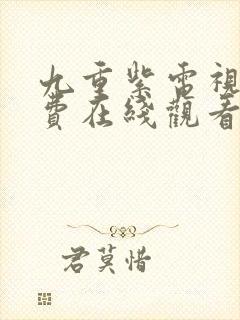 九重紫電視
費在綫觀看
君莫惜